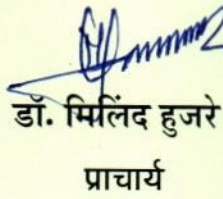 डॉ. मिलिंद हुजरे
प्राचार्य